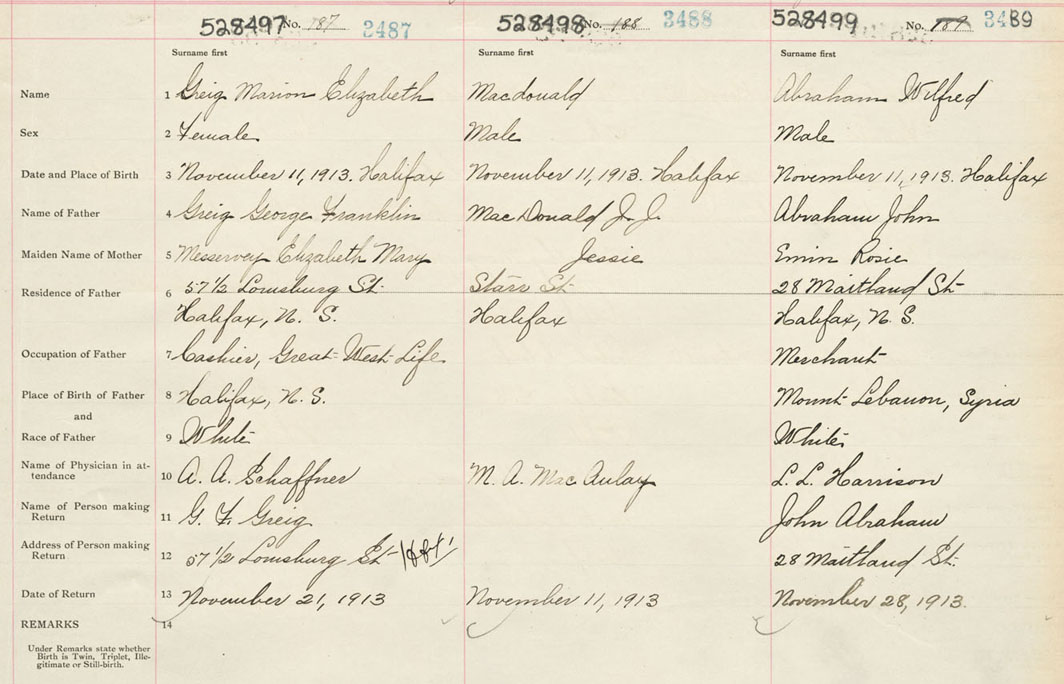 528497 No. 187 3487 528498 No. 188 3488 528499 No. 189 3489
Surname first Surname first Surname first
Name 1 Greig Marion Elizabeth Macdonald Abraham Wilfred
Sex 2 Female Male Male
Date and Place of Birth 3 November 11, 1913. Halifax November 11, 1913. Halifax November 11, 1913. Halifax
Name of Father 4 Greig George Franklin Mac Donald J. J. Abraham John
Maiden Name of Mother 5 Messervey Elizabeth Mary Jessie Emin Rosie
Residence of Father 6 57 1/2 Louisburg St. Starr St. 28 Maitland St.
Halifax, N. S. Halifax Halifax, N. S.
Occupation of Father 7 Cashier, Great-West-Life. Merchant
Place of Birth of Father 8 Halifax, N. S. Mount Lebanon, Syria
and
Race of Father 9 White White
Name of Physician in at-
tendance 10 A. A. Schaffner M. A. MacAulay L. L. Harrison
Name of Person making
Return 11 G. F. Greig John Abraham
Address of Person making
Return 12 57 1/2 Louisburg St. Hfx 28 Maitland St.
Date of Return 13 November 21, 1913 November 11, 1913 November 28, 1913.
REMARKS 14
Under Remarks state whether
Birth is Twin, Triplet, Ille-
gitimate or Still-birth.